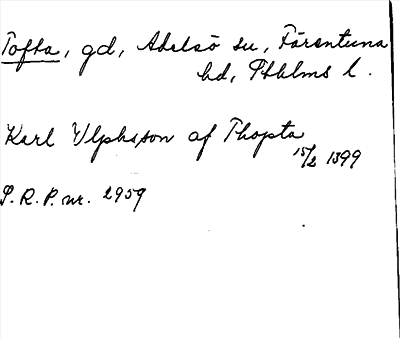 Tofta, gd, Adelsö sn, Färentuna
hd, Sthlms l.
Karl Ulphsson af Thopta
15/2 1399
S.R.P. nr. 2959